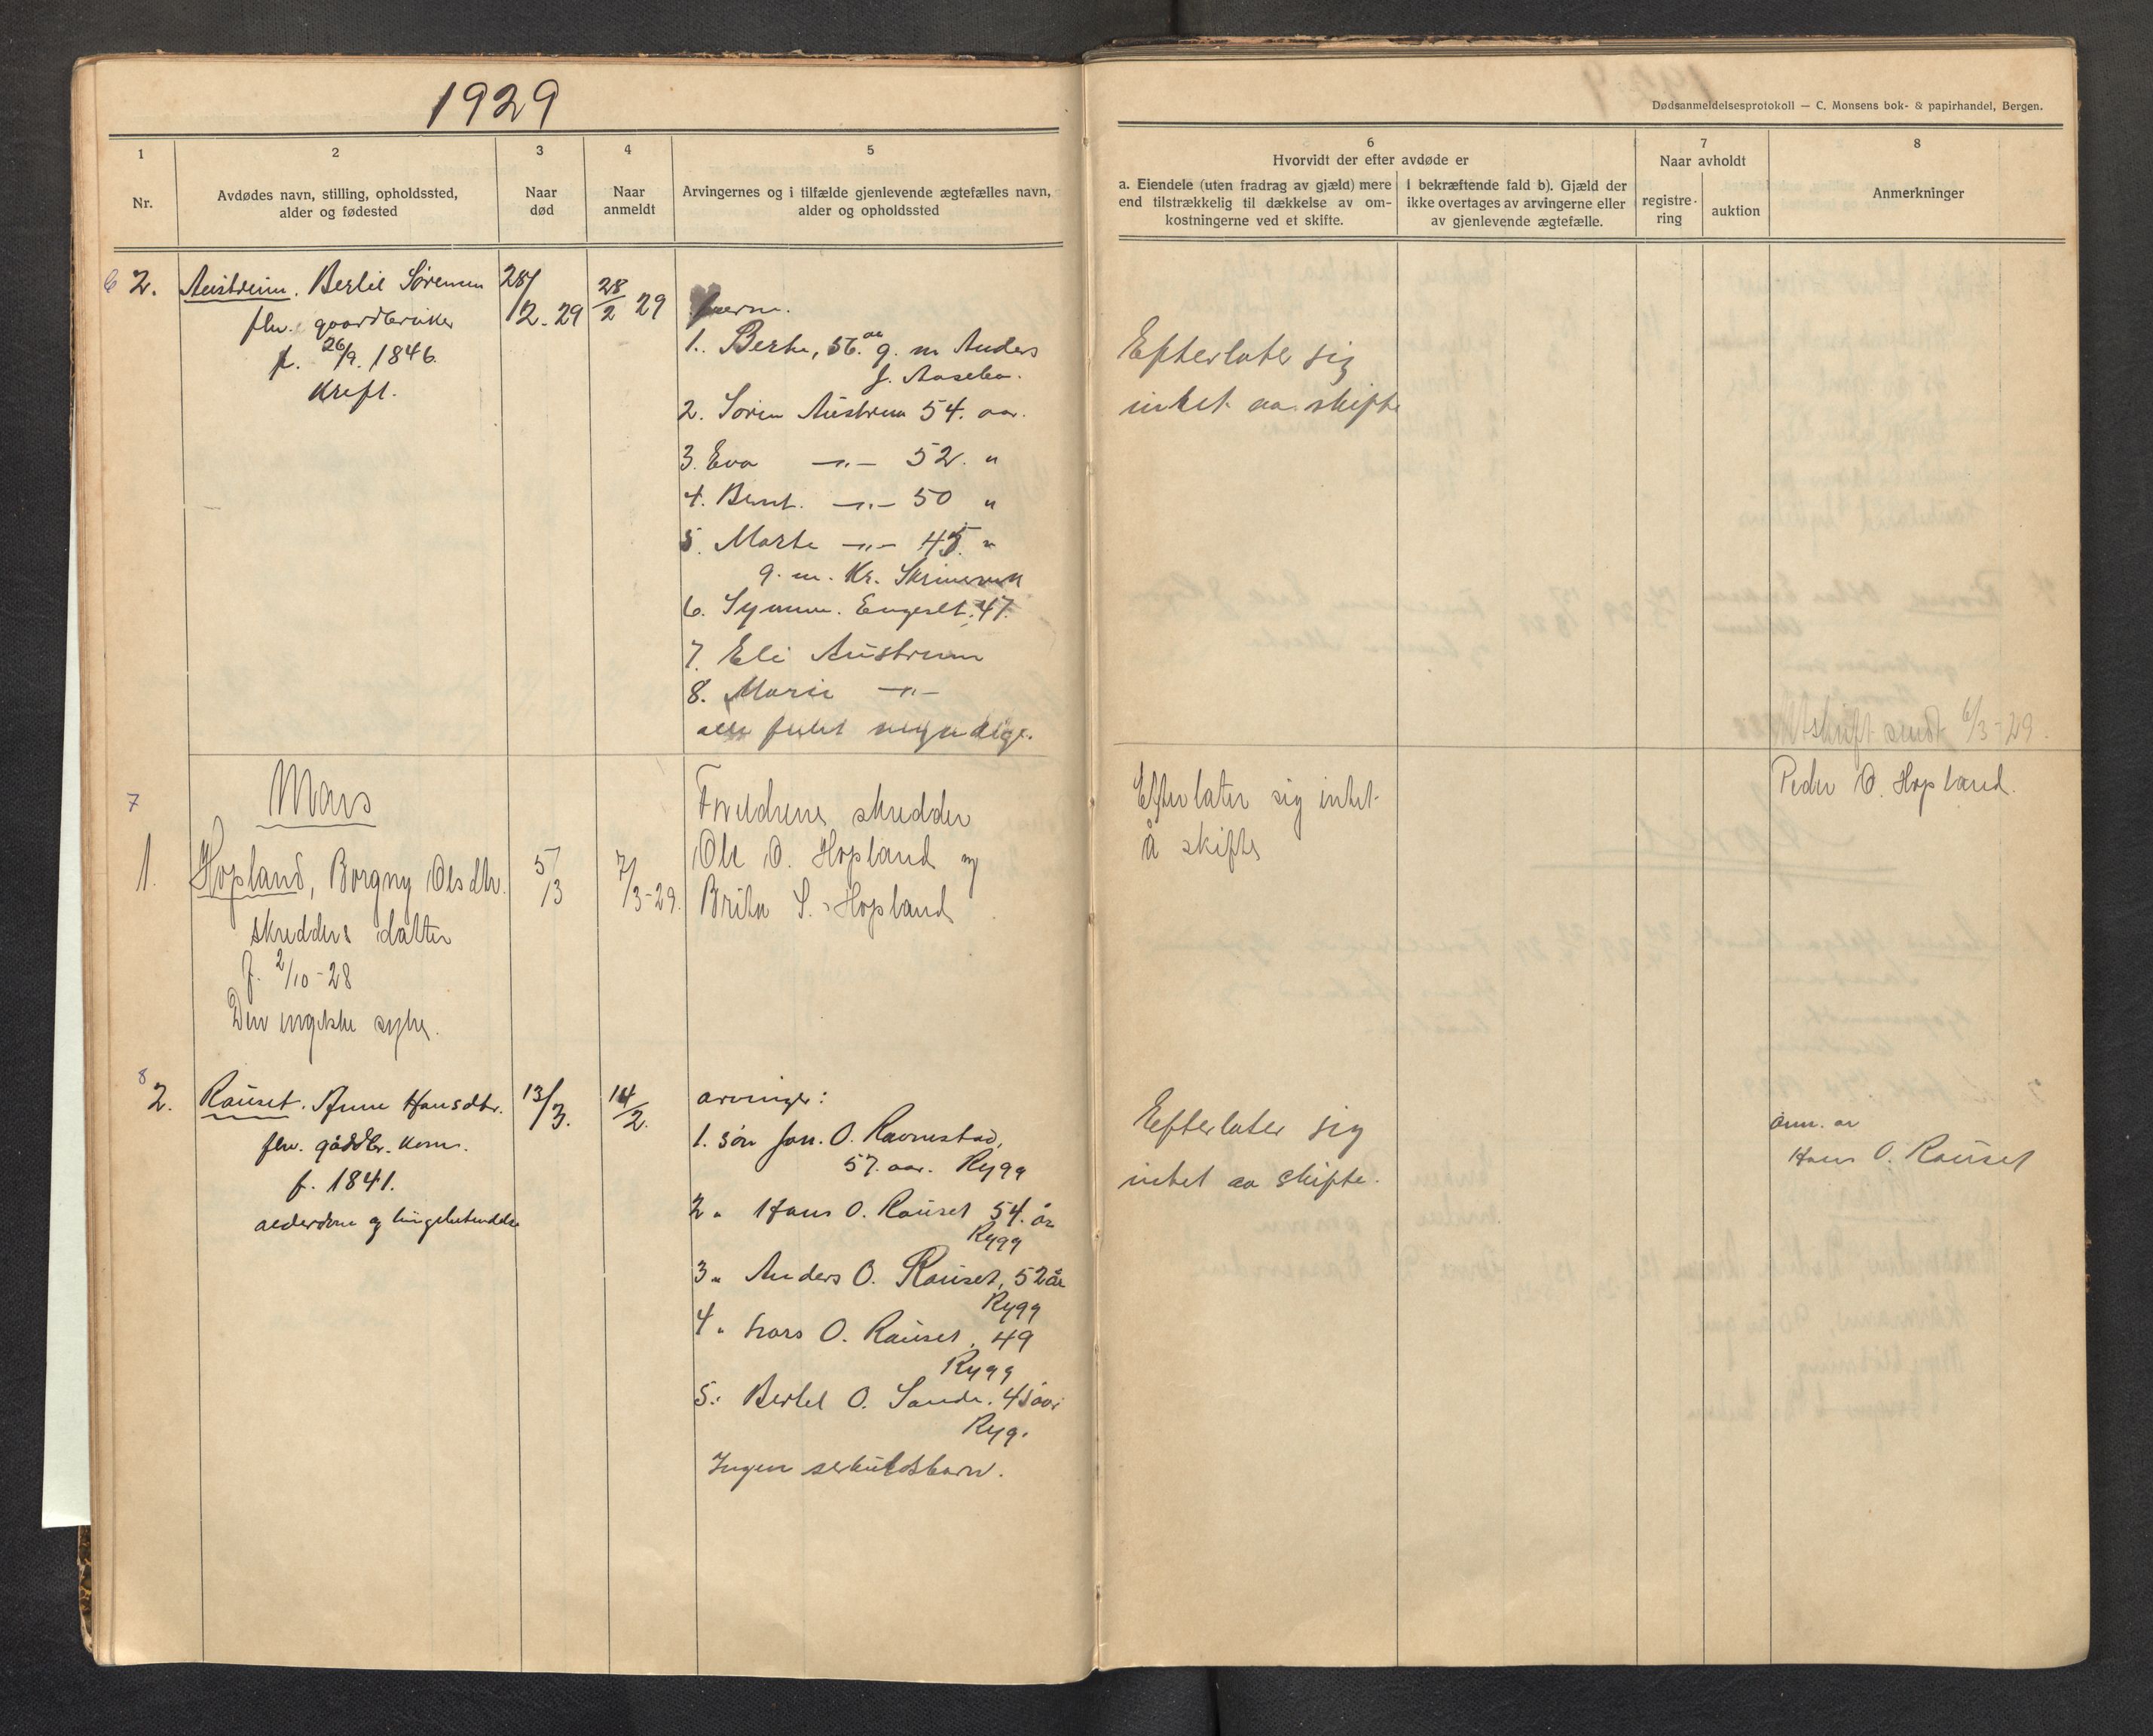 1929
1
2
3
4
5
Nr.
Avdødes navn, stilling, opholdssted,
alder og fødested
Naar
død
Naar
anmeldt
Arvingernes og i tilfælde gjenlevende ægtefælles navn,
alder og opholdssted
6 2. Austreim. Bertil Sørensen
flv. gaardbruker
f. 26/9. 1846.
Kreft.
28/
2. 29
28/2 29
1. Berte, 56. aar g. m Anders
J. Aasebø.
2. Søren Austreim 54. aar.
3. Eva -"- 52. "
4. Bernt. -"- 50 "
5. Marte -"- 45. "
g. m. Kr.
6. Engeset. 47.
7. Eli Austreim
8. Marie -"-
alle fuldt myndige.
7
Mars
1. Hopland, Borgny Olsdtr.
skredders datter
f. 2/10-28
Den engelske syke.
5/3
7/3-29.
Foreldrene skredder
Ole O. Hopland og
Brita S. Hopland
8
2. Rauset. Anne Hansdtr.
flv. gårdbr. kone.
f. 1841.
alderdom og lungebetendelse
13/3.
14/2.
arvinger:
1. søn Jon. O. Ravnestad,
57. aar. Rygg
2 " Hans O. Rauset 54. år
Rygg
3 " Anders O. Rauset, 52 år
Rygg
4 " Lars O. Rauset, 49
Rygg
5 " Bertel O. Sande. 45 aar
Ryg.
Ingen serkuldsbarn.
Dødsanmeldelsesprotokoll — C. Monsens bok- & papirhandel, Bergen.
6
Hvorvidt der efter avdøde er
a. Eiendele (uten fradrag av gjæld) mere
end tilstrækkelig til dækkelse av om-
kostningerne ved et skifte.
I bekræftende fald b). Gjæld der
ikke overtages av arvingerne eller
av gjenlevende ægtefælle.
7
Naar avholdt
registre-
ring
auktion
8
Anmerkninger
Efterlater sig
intet aa skifte
Utskrift sendt 6/3-29.
Efterlater sig intet
å skifte
Peder O. Hopland.
Efterlater sig
intet aa skifte.
anm. av
Hans O. Rauset